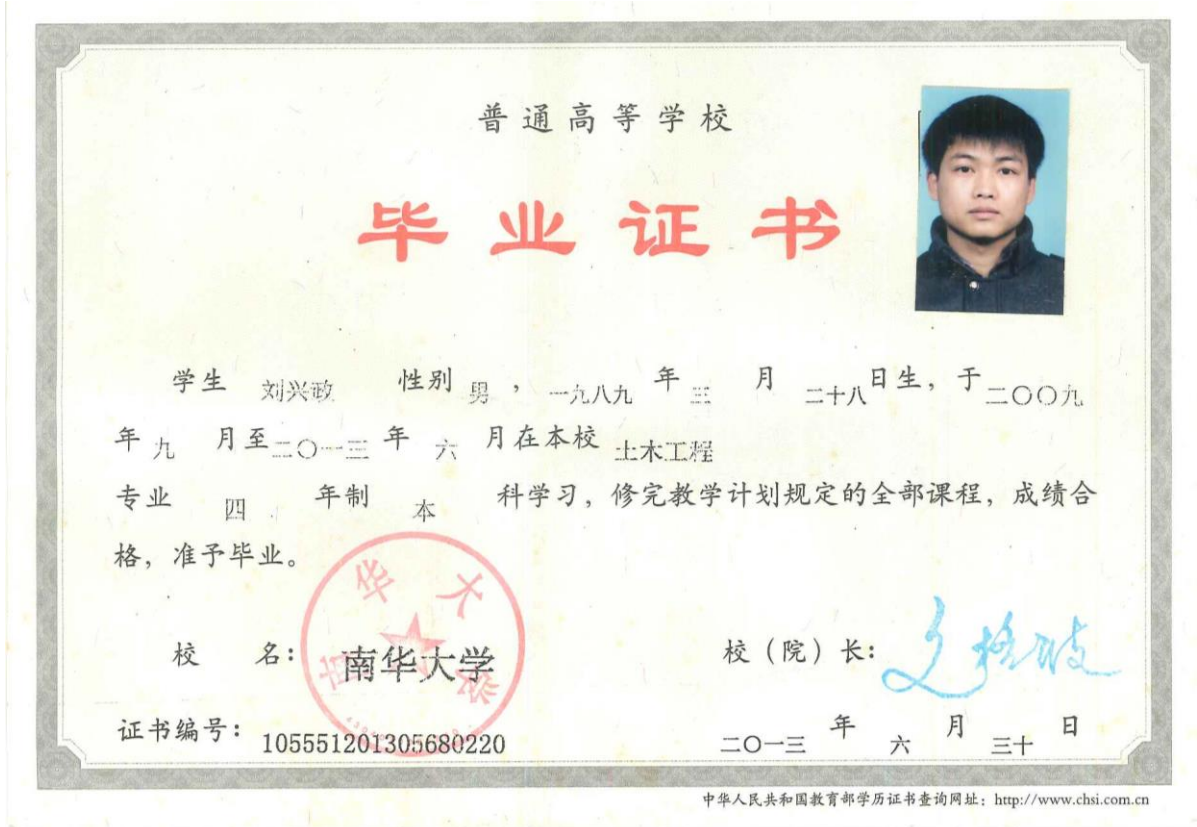 普通高等学校
毕业证书
学生 刘兴政 性别 男，一九八九 年 三 月 二十八日生，于二〇〇九
年九 月至二〇一三 年 六 月在本校 土木工程
专业 四 年制 本 科学习，修完教学计划规定的全部课程，成绩合
格，准予毕业。
校 名：南华大学 校（院）长：文格波
南华大学
证书编号：105551201305680220 二〇一三 年 六 月 三十 日
中华人民共和国教育部学历证书查询网址：http://www.chsi.com.cn